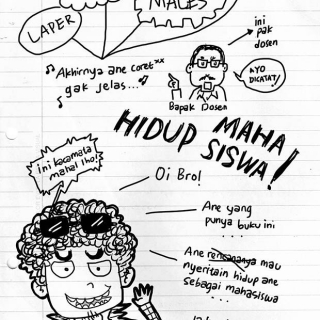 LAPER
MALES
ini
pak
dosen
Akhirnya ane coret**
gak jelas...
AYO
DICATAT!
Bapak Dosen
HIDUP MAHA
SISWA!
ini kacamata
mahal lho!
Oi Bro!
Ane yang
punya buku ini
...
Ane rencananya mau
nyeritain hidup ane
sebagai mahasiswa
...